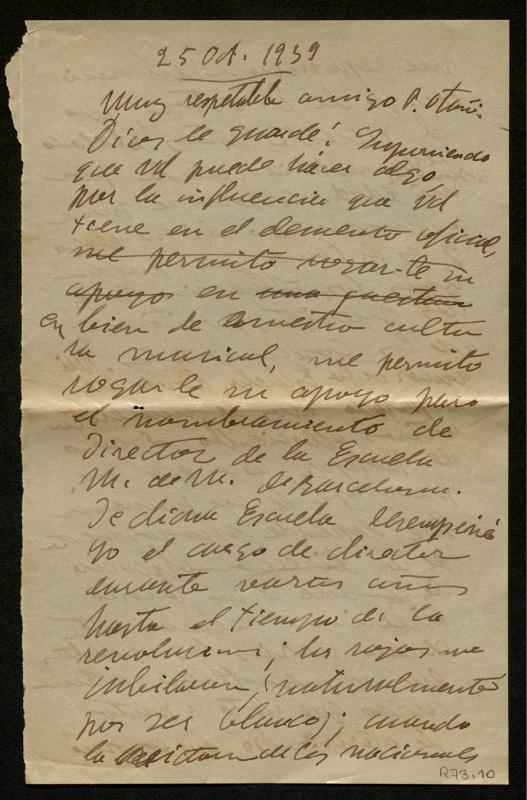 25 Oct. 1939
Muy respetable amigo P. Otaño.
Dios le guarde! Suponiendo
que Vd puede hacer algo,
por la influencia que Vd
tiene en el elemento oficial,
me permito rogar-le su
apoyo en una cuestion
en bien de nuestra cultu
ra musical, me permito
rogarle su apoyo para
el nombramiento de
Director de la Escuela
M. de M. de Barcelona.
De dicha Escuela desempeñé
yo el cargo de director
durante varios años
hasta el tiempo de la
revolucion; los rojos me
jubilaron, (naturalmente
por ser blanco); cuando
la victoria de los nacionales
R73.10